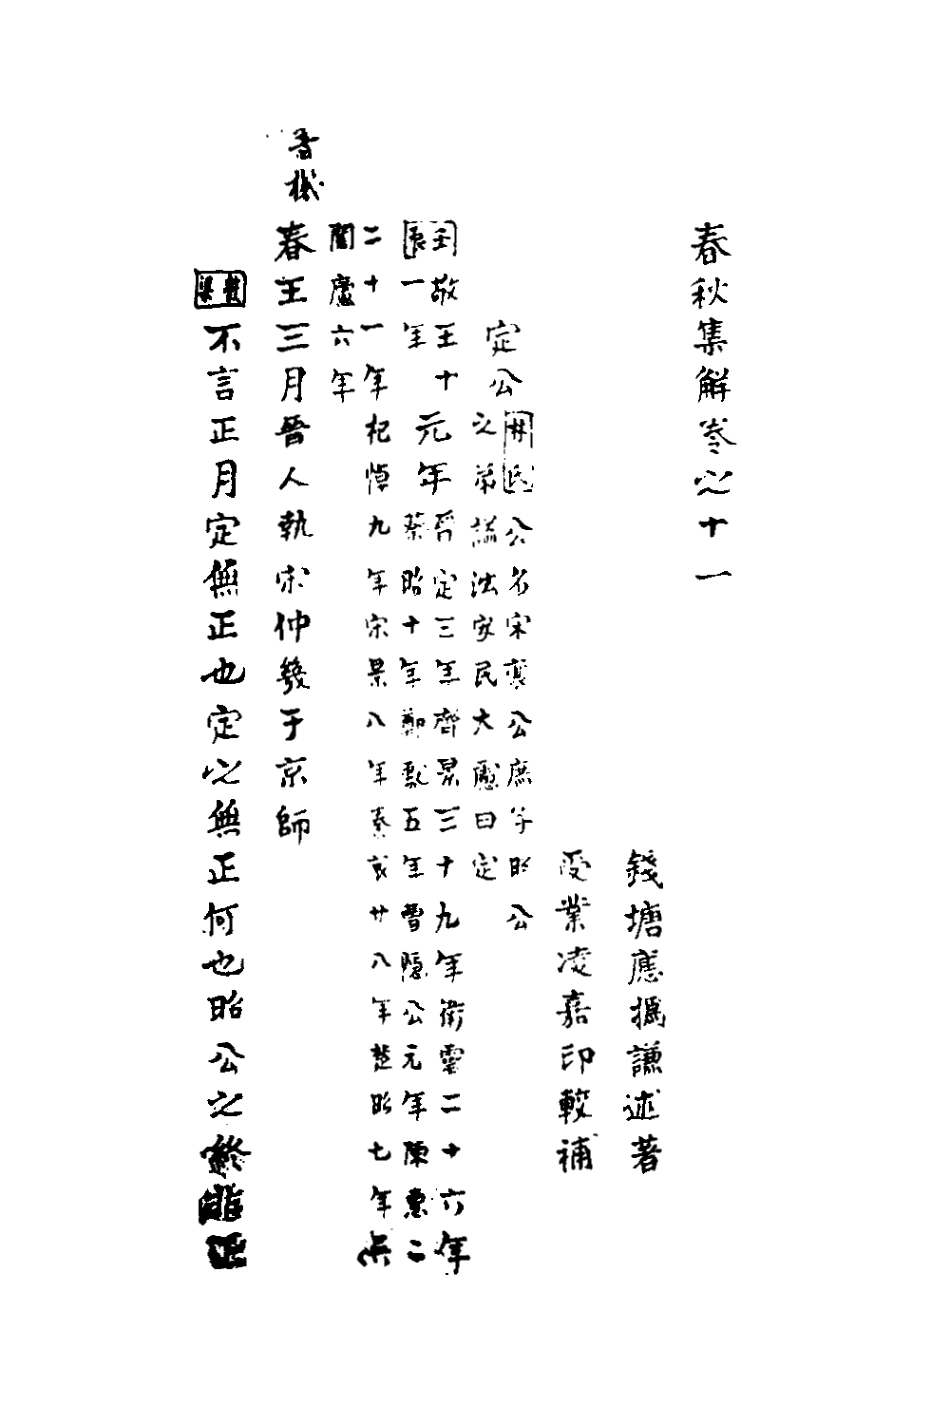 春秋集解卷之十一
錢塘應撝謙述著
受業凌嘉印較補
定公
氏公名宋襄公庶子昭公
之弟諡法安民大慮曰定
壬辰
敬王十
一年
元年
晉定三年齊景三十九年衛靈二十六年
蔡昭十年鄭獻五年曹隱公元年陳惠二
二十一年杞悼九年宋景八年秦哀廿八年楚昭七年吳
闔廬六年
春王三月晉人執宋仲幾于京師
穀梁不言正月定無正也定之無正何也昭公之終非正